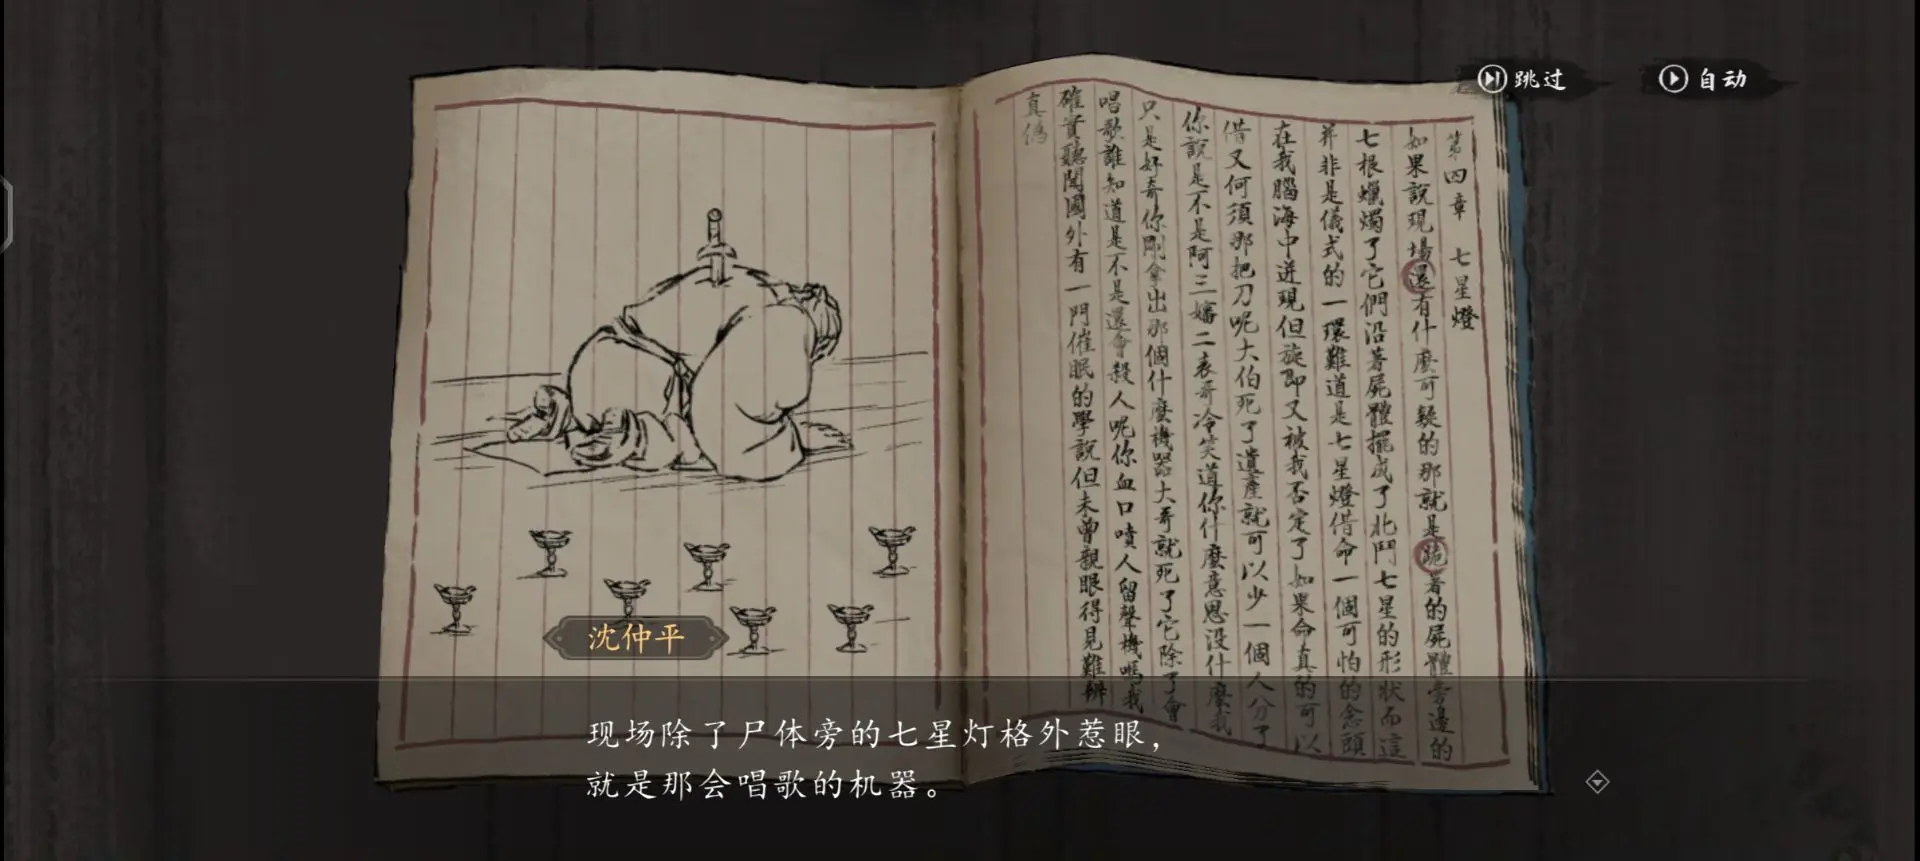 跳过
自动
第四章 七星燈
如果說現場還有什麼可疑的那就是跪著的屍體旁邊的
七根蠟燭了它們沿著屍體擺成了北鬥七星的形狀而這
并非是儀式的一環難道是七星燈借命一個可怕的念頭
在我腦海中迸現但旋即又被我否定了如果命真的可以
借又何須那把刀呢大伯死了遺產就可以少一個人分了
你說是不是阿三嬸二表哥冷笑道你什麼意思沒什麼我
只是好奇你剛拿出那個什麼機器大哥就死了它除了會
唱歌誰知道是不是還會殺人呢你血口噴人留聲機嗎我
確實聽聞國外有一門催眠的學說但未曾親眼得見難辨
真偽
沈仲平
现场除了尸体旁的七星灯格外惹眼，
就是那会唱歌的机器。